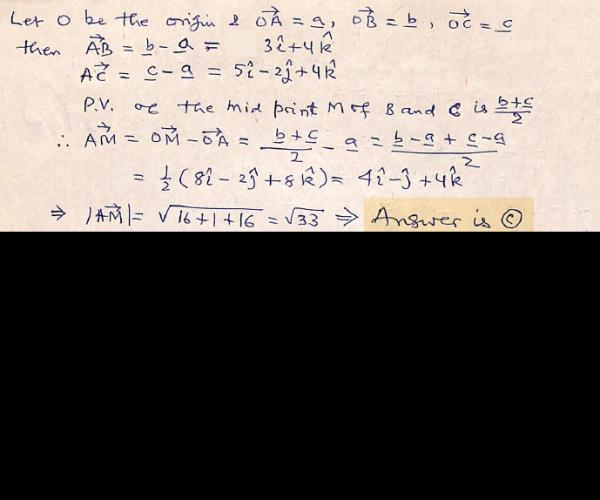 Let O be the origin & \vec{OA} = \underline{a}, \vec{OB} = \underline{b}, \vec{OC} = \underline{c}
then \vec{AB} = \underline{b} - \underline{a} = 3î + 4k̂
\vec{AC} = \underline{c} - \underline{a} = 5î - 2ĵ + 4k̂
P.V. of the mid point M of B and C is \frac{\underline{b}+\underline{c}}{2}
∴ \vec{AM} = \vec{OM} - \vec{OA} = \frac{\underline{b}+\underline{c}}{2} - \underline{a} = \frac{\underline{b}-\underline{a}+\underline{c}-\underline{a}}{2}
= \frac{1}{2} (8î - 2ĵ + 8k̂) = 4î - ĵ + 4k̂
⇒ |\vec{AM}| = √16+1+16 = √33 ⇒ Answer is ©